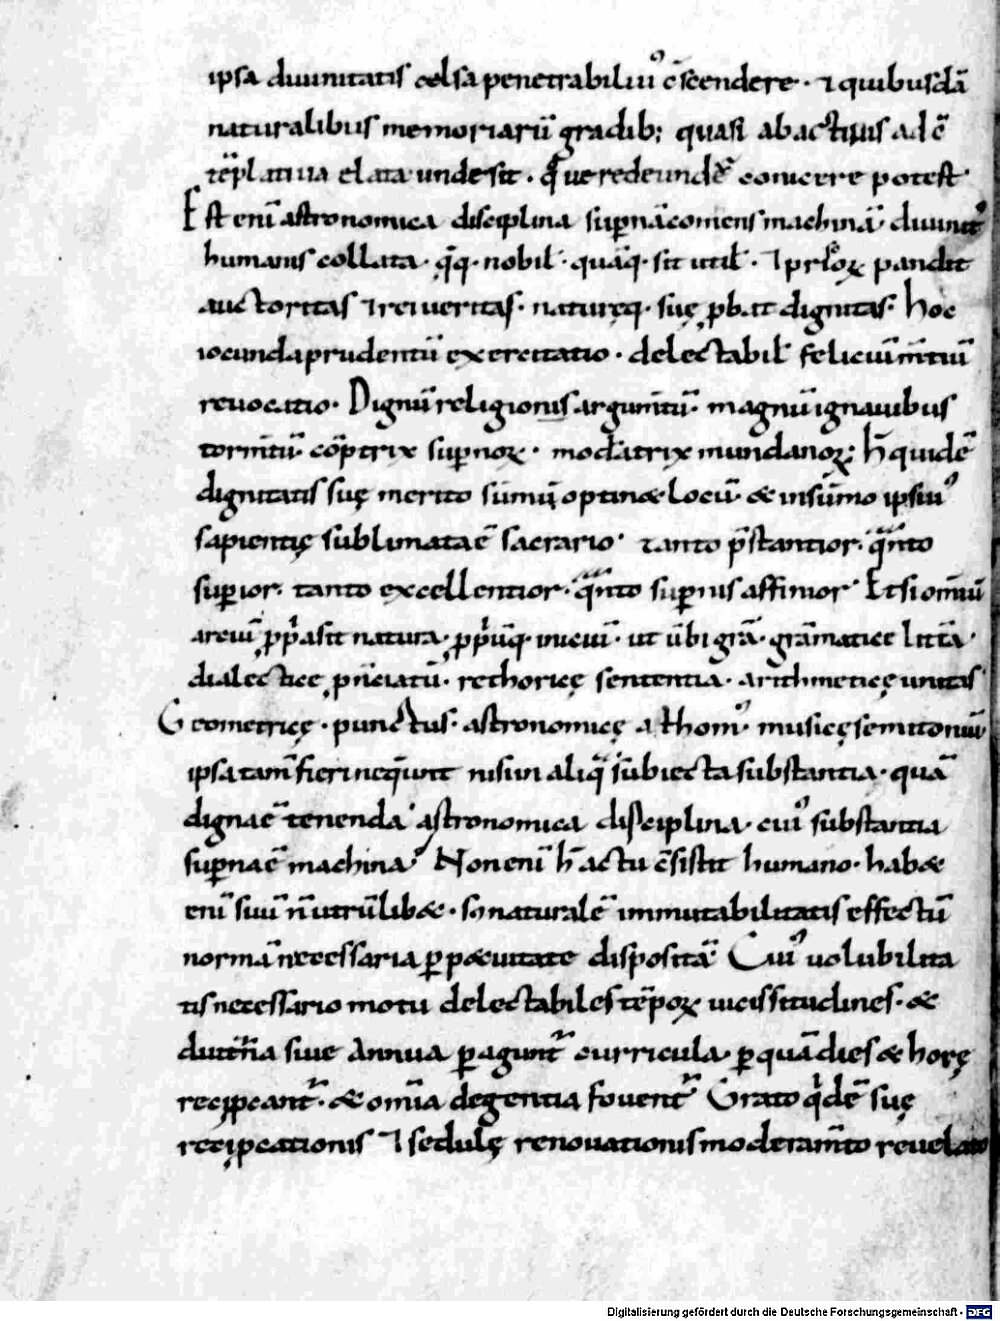 ipsa diuinitatis celsa penetrabiliu᾽ c̄scendere · ⁊ quibusdā
naturalibus memoriarū gradib; quasi ab actiuis ad c̄
tēplatiua elata unde sit . que redeundē conicere potest
Est eni̅ astronomica disciplina sup̱nā comens machinā diuinit᾽
humanis collata · q̄q · nobil · quāq · sit util · ⁊ prioꝝ pandit
auctoritas ⁊ rei ueritas · natureq · suę ꝓbat dignitas · hoc
iocunda prudentū exercitatio · delectabil feliciū m̄tiū
reuocatio · Dignū religionis argum̄tū · magnū ignauibus
torm̄tū · cōptrix sup̱noꝝ · moderatrix mundanoꝝ; h̄ quidē
dignitatis suę merito sūmū optin& locū · & in sūmo ipsiu᾽
sapientię sublimata ē sacrario · tanto p̄stantior · quāto
sup̱ior · tanto excellentior · quāto sup̱nis affinior · Et si omniū
artiū ꝓpria sit natura · ꝓpriūq · initiū · ut ū̄bi grā · grāmatice littā ·
dialectice ꝓnūciatū · rethoricę sententia · arithmeticę unitas
Geometricę · punctus · astronomicę athom᾽ musicę semitoniū
ipsa tam̄ fieri neq̄unt nisi in aliq̄ subiecta substantia · quā
digna ē tenenda astronomica disciplina · cui᾽ substantia
sup̱na ē machina · Non eni̅ h̄ actu c̄sistit humano · hab&
eni̅ suū n̄ utrūlib& · s; naturalē immutabilitatis effectū
normā necessaria p̱p&uitate dispositā · Cui᾽ uolubilita
tis necessario motu delectabiles tēpoꝝ uicissitudines · &
diut̄na siue annua p̱agunt᾽ curricula · p̱ quā dies & horę
recip̱cant᾽ · & om̄ia degentia fouent᾽ Grato q̇dē suę
recip̱cationis ⁊ sedulę renouationis moderam̄to reuelato
Digitalisierung gefördert durch die Deutsche Forschungsgemeinschaft - DFG